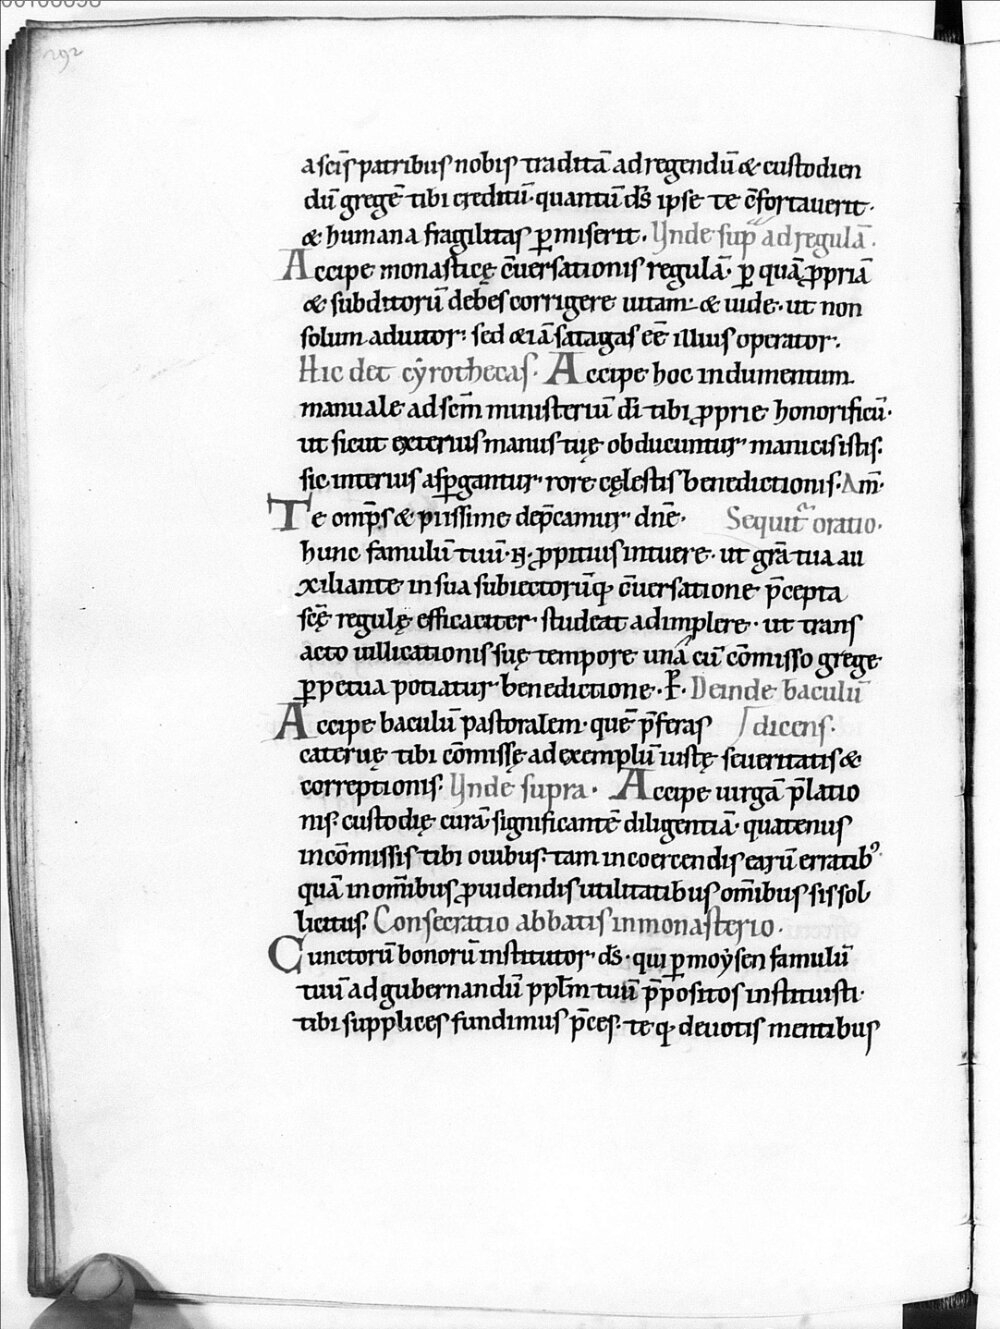 292
a sc̄is patribus nobis traditā ad regendū & custodien
dū gregē tibi creditū· quantū ds̄ ipse te c̄fortauerit·
& humana fragilitas ꝑmiserit. Vnde sup̄ ad regulā.
Accipe monasticę c̄uersationis regulā· ꝑ quā ꝓpriā
& subditorū debes corrigere uitam· & uide· ut non
solum aduitor: sed &iā satagas eē illius operator.
Hic det cẏrothecas. Accipe hoc indumentum
manuale ad sc̄m ministeriū d̄i tibi ꝓprie honorificū·
ut sicut exterius manus tuę obducuntur manicis istis:
sic interius aspergantur rore cęlestis benedictionis· Am̄.
Te omp̄s & piissime dep̄camur dn̄e· Sequit̄ oratio.
hunc famulū tuū ·N· ꝓpitius intuere· ut gr̄a tua au
xiliante in sua subiectorūq; c̄uersatione p̄cepta
sc̄ę regulę efficaciter studeat adimplere· ut trans
acto uillicationis suę tempore unā cū cōmisso grege
ꝑpetua potiatur benedictione· P̄. Deinde baculū
Accipe baculū pastoralem· quē p̄feras dicens.
cateruę tibi cōmissę ad exemplū iustę seueritatis &
correptionis. Vnde supra. Accipe uirgā p̄latio
nis: custodię curā significantē diligentiā· quatenus
in cōmissis tibi ouibus: tam in coercendis earū erratib᾽
quā in om̄ibus ꝓuidendis utilitatibus om̄ibus sis sol
licitus. Consecratio abbatis in monasterio.
Cunctorū bonorū institutor ds̄· qui ꝑ moẏsen famulū
tuū ad gubernandū ppl̄m tuū p̄positos instituisti·
tibi supplices fundimus p̄ces: te q; deuotis mentibus